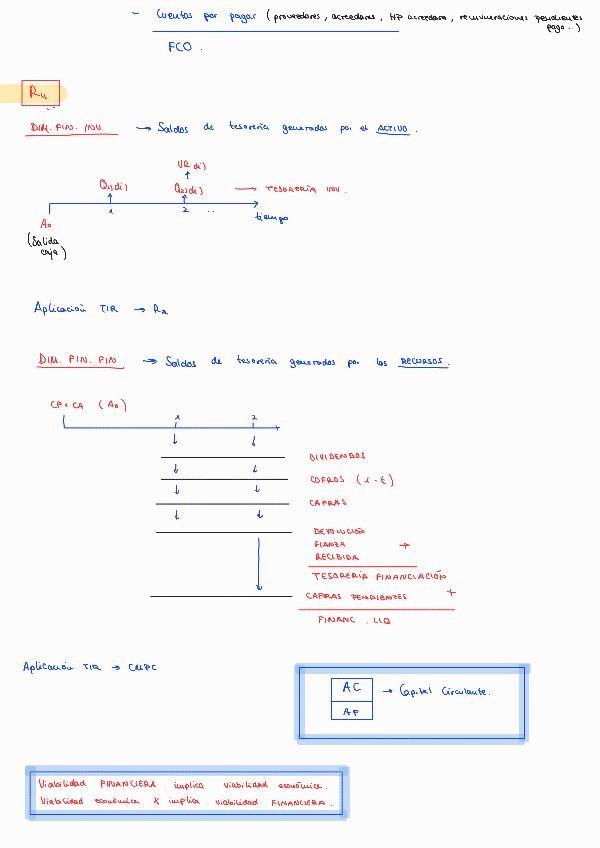 - Cuentas por pagar (proveedores, acreedores, HP acreedora, remuneraciones pendientes
pago..)
FCO.
DIM. FIN. INV → Saldos de tesorería generados por el ACTIVO.
VR (di)
Q1(di) Q2(di) → TESORERÍA INV.
1 2 .. tiempo
A0
(Salida
caja)
Aplicación TIR →
DIM. FIN. FIN → Saldos de tesorería generados por los RECURSOS.
CP + CA (A0)
1 2
DIVIDENDOS
COFROS (1-t)
CAFRAS
DEVOLUCIÓN
FIANZA +
RECIBIDA
TESORERÍA FINANCIACIÓN
CAFRAS PENDIENTES +
FINANC. LIQ
Aplicación TIR → CMPC
AC → Capital Circulante.
AF
Viabilidad FINANCIERA implica viabilidad económica.
Viabilidad económica X implica viabilidad FINANCIERA.